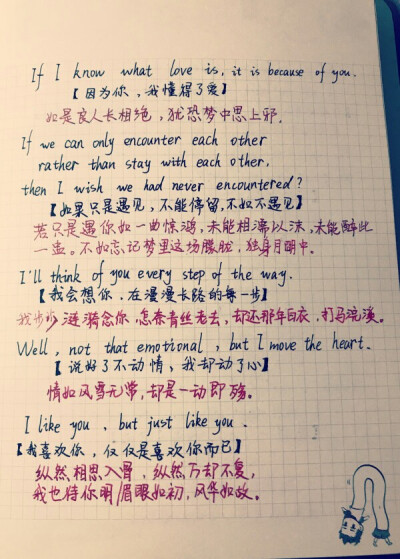 If I know what love is, it is because of you.
【因为你，我懂得了爱】
如是良人长相绝，犹恐梦中思上邪.
If we can only encounter each other
rather than stay with each other,
then I wish we had never encountered?
【如果只是遇见，不能停留，不如不遇见】
若只是遇你如一曲惊鸿，未能相濡以沫，未能醉此
一盅。不如忘记梦里这场朦胧，独身月明中.
I'll think of you every step of the way.
【我会想你，在漫漫长路的每一步】
我步步涟漪念你，怎奈青丝老去，却还那年白衣，打马浣溪。
Well, not that emotional, but I move the heart.
【说好了不动情，我却动了心】
情如风雪无常，却是一动即殇。
I like you, but just like you.
【我喜欢你，仅仅是喜欢你而已】
纵然相思入骨，纵然万劫不复，
我也待你明眉眼如初，风华如故。